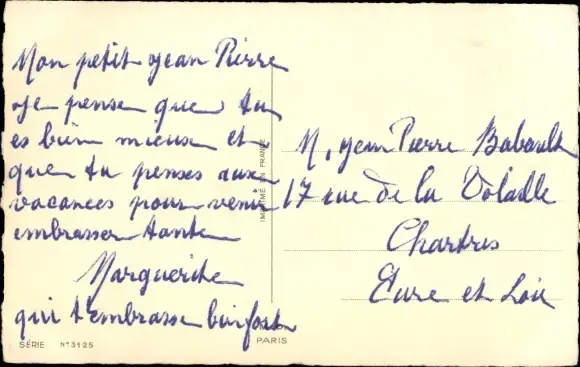 Mon petit Jean Pierre
Je pense que tu
es bien mieux et
que tu penses aux
vacances pour venir
embrasser tante
Marguerite
qui t'embrasse bien fort
M. Jean Pierre Babault
17 rue de la Volaille
Chartres
Eure et Loir
IMPRIMÉ EN FRANCE
SÉRIE N° 3125
PARIS